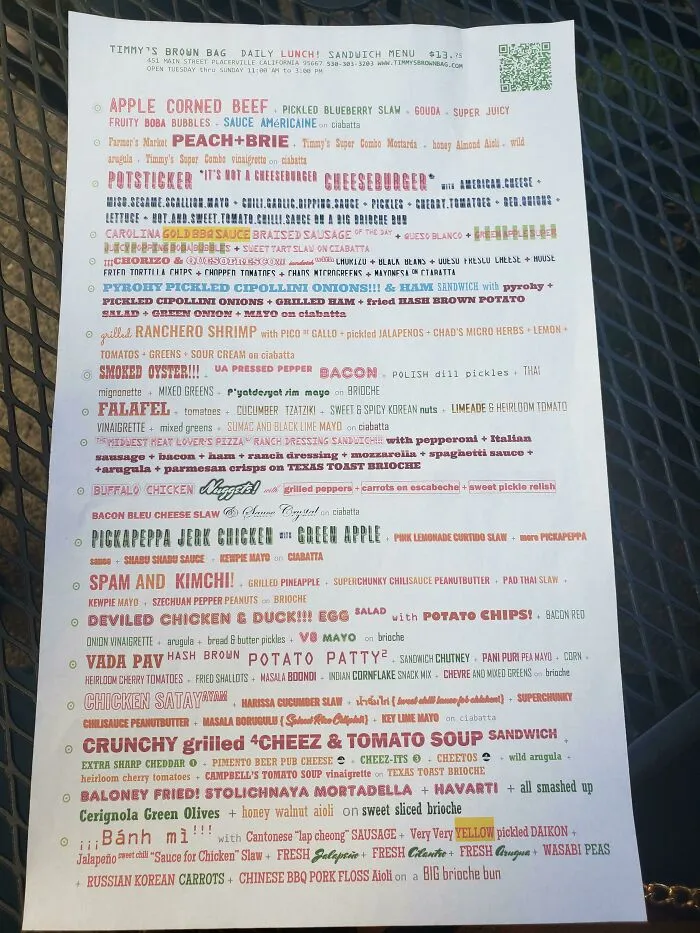 TIMMY'S BROWN BAG DAILY LUNCH! SANDWICH MENU $13.75
451 MAIN STREET PLACERVILLE CALIFORNIA 95667 530-303-3203 WWW.TIMMYSBROWNBAG.COM
OPEN TUESDAY thru SUNDAY 11:00 AM to 3:00 PM
APPLE CORNED BEEF + PICKLED BLUEBERRY SLAW + GOUDA + SUPER JUICY
FRUITY BOBA BUBBLES + SAUCE AMéRICAINE on ciabatta
Farmer's Market PEACH+BRIE + Timmy's Super Combo Mostarda + honey Almond Aioli + wild
arugula + Timmy's Super Combo vinaigrette on ciabatta
POTSTICKER "IT'S NOT A CHEESEBURGER CHEESEBURGER" WITH AMERICAN.CHEESE +
MISO.SESAME.SCALLION.MAYO + CHILI.GARLIC.DIPPING.SAUCE + PICKLES + CHERRY.TOMATOES + RED.ONIONS +
LETTUCE + HOT.AND.SWEET.TOMATO.CHILI.SAUCE ON A BIG BRIOCHE BUN
CAROLINA GOLD BBQ SAUCE BRAISED SAUSAGE OF THE DAY + QUESO BLANCO + GREEN APPLE SUPER
JUICY POPPING BOBA BUBBLES + SWEET TART SLAW ON CIABATTA
¡¡¡CHORIZO & QUESOFRESCO!!! sandwich with CHORIZO + BLACK BEANS + QUESO FRESCO CHEESE + HOUSE
FRIED TORTILLA CHIPS + CHOPPED TOMATOES + CHADS MICROGREENS + MAYONESA ON CIABATTA
PYROHY PICKLED CIPOLLINI ONIONS!!! & HAM SANDWICH with pyrohy +
PICKLED CIPOLLINI ONIONS + GRILLED HAM + fried HASH BROWN POTATO
SALAD + GREEN ONION + MAYO on ciabatta
grilled RANCHERO SHRIMP with PICO DE GALLO + pickled JALAPENOS + CHAD'S MICRO HERBS + LEMON +
TOMATOES + GREENS + SOUR CREAM on ciabatta
SMOKED OYSTER!!! + UA PRESSED PEPPER BACON + POLISH dill pickles + THAI
mignonette + MIXED GREENS + P'yatdesyat sim mayo on BRIOCHE
FALAFEL + tomatoes + CUCUMBER TZATZIKI + SWEET & SPICY KOREAN nuts + LIMEADE & HEIRLOOM TOMATO
VINAIGRETTE + mixed greens + SUMAC AND BLACK LIME MAYO on ciabatta
THE MIDWEST MEAT LOVER'S PIZZA RANCH DRESSING SANDWICH!!! with pepperoni + Italian
sausage + bacon + ham + ranch dressing + mozzarella + spaghetti sauce +
+arugula + parmesan crisps on TEXAS TOAST BRIOCHE
BUFFALO CHICKEN Nuggets! with grilled peppers + carrots en escabeche + sweet pickle relish
BACON BLEU CHEESE SLAW & Sauce Crystal on ciabatta
PICKAPEPPA JERK CHICKEN WITH GREEN APPLE + PINK LEMONADE CURTIDO SLAW + more PICKAPEPPA
sauce + SHABU SHABU SAUCE + KEWPIE MAYO on CIABATTA
SPAM AND KIMCHI! + GRILLED PINEAPPLE + SUPERCHUNKY CHILISAUCE PEANUTBUTTER + PAD THAI SLAW +
KEWPIE MAYO + SZECHUAN PEPPER PEANUTS on BRIOCHE
DEVILED CHICKEN & DUCK!!! EGG SALAD with POTATO CHIPS! + BACON RED
ONION VINAIGRETTE + arugula + bread & butter pickles + V8 MAYO on brioche
VADA PAV HASH BROWN POTATO PATTY² + SANDWICH CHUTNEY + PANI PURI PEA MAYO + CORN +
HEIRLOOM CHERRY TOMATOES + FRIED SHALLOTS + MASALA BOONDI + INDIAN CORNFLAKE SNACK MIX + CHEVRE AND MIXED GREENS on brioche
CHICKEN SATAY AYAM + HARISSA CUCUMBER SLAW + น้ำจิ้มไก่ ( sweet chili sauce for chicken! ) + SUPERCHUNKY
CHILISAUCE PEANUTBUTTER + MASALA BORUGULU ( Spiced Rice Crispies! ) + KEY LIME MAYO on ciabatta
CRUNCHY grilled ⁴CHEEZ & TOMATO SOUP SANDWICH +
EXTRA SHARP CHEDDAR ❶ + PIMENTO BEER PUB CHEESE + CHEEZ-ITS ❸ + CHEETOS + wild arugula +
heirloom cherry tomatoes + CAMPBELL'S TOMATO SOUP vinaigrette on TEXAS TOAST BRIOCHE
BALONEY FRIED! STOLICHNAYA MORTADELLA + HAVARTI + all smashed up
Cerignola Green Olives + honey walnut aioli on sweet sliced brioche
¡¡¡Bánh mì!!! with Cantonese "lap cheong" SAUSAGE + Very Very YELLOW pickled DAIKON +
Jalapeño sweet chili "Sauce for Chicken" Slaw + FRESH Jalapeño + FRESH Cilantro + FRESH Arugua + WASABI PEAS
+ RUSSIAN KOREAN CARROTS + CHINESE BBQ PORK FLOSS Aioli on a BIG brioche bun